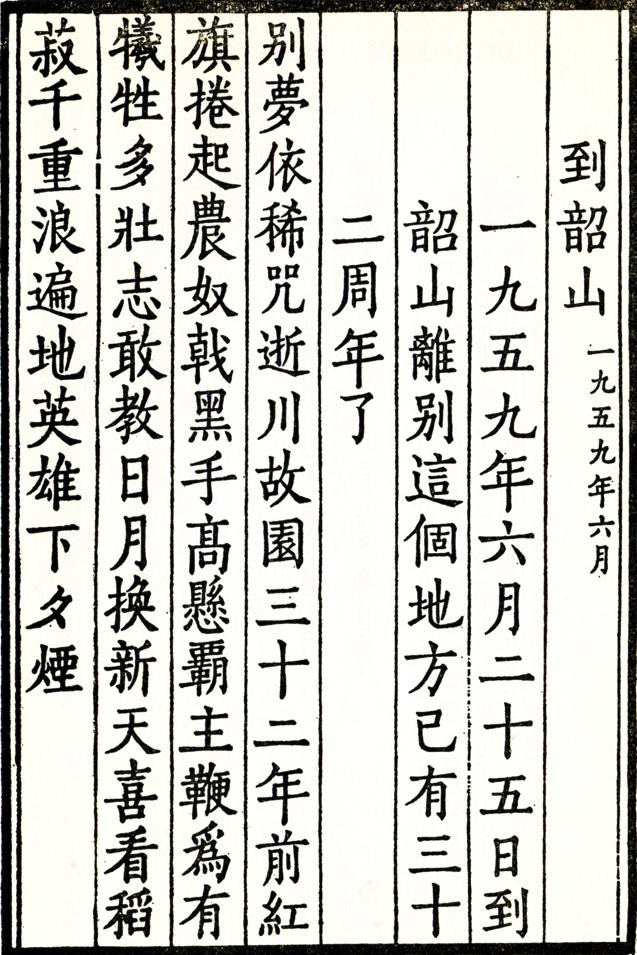 到韶山 一九五九年六月
一九五九年六月二十五日到
韶山離别這個地方已有三十
二周年了
别夢依稀咒逝川故園三十二年前紅
旗捲起農奴戟黑手高懸霸主鞭爲有
犧牲多壯志敢教日月换新天喜看稻
菽千重浪遍地英雄下夕煙